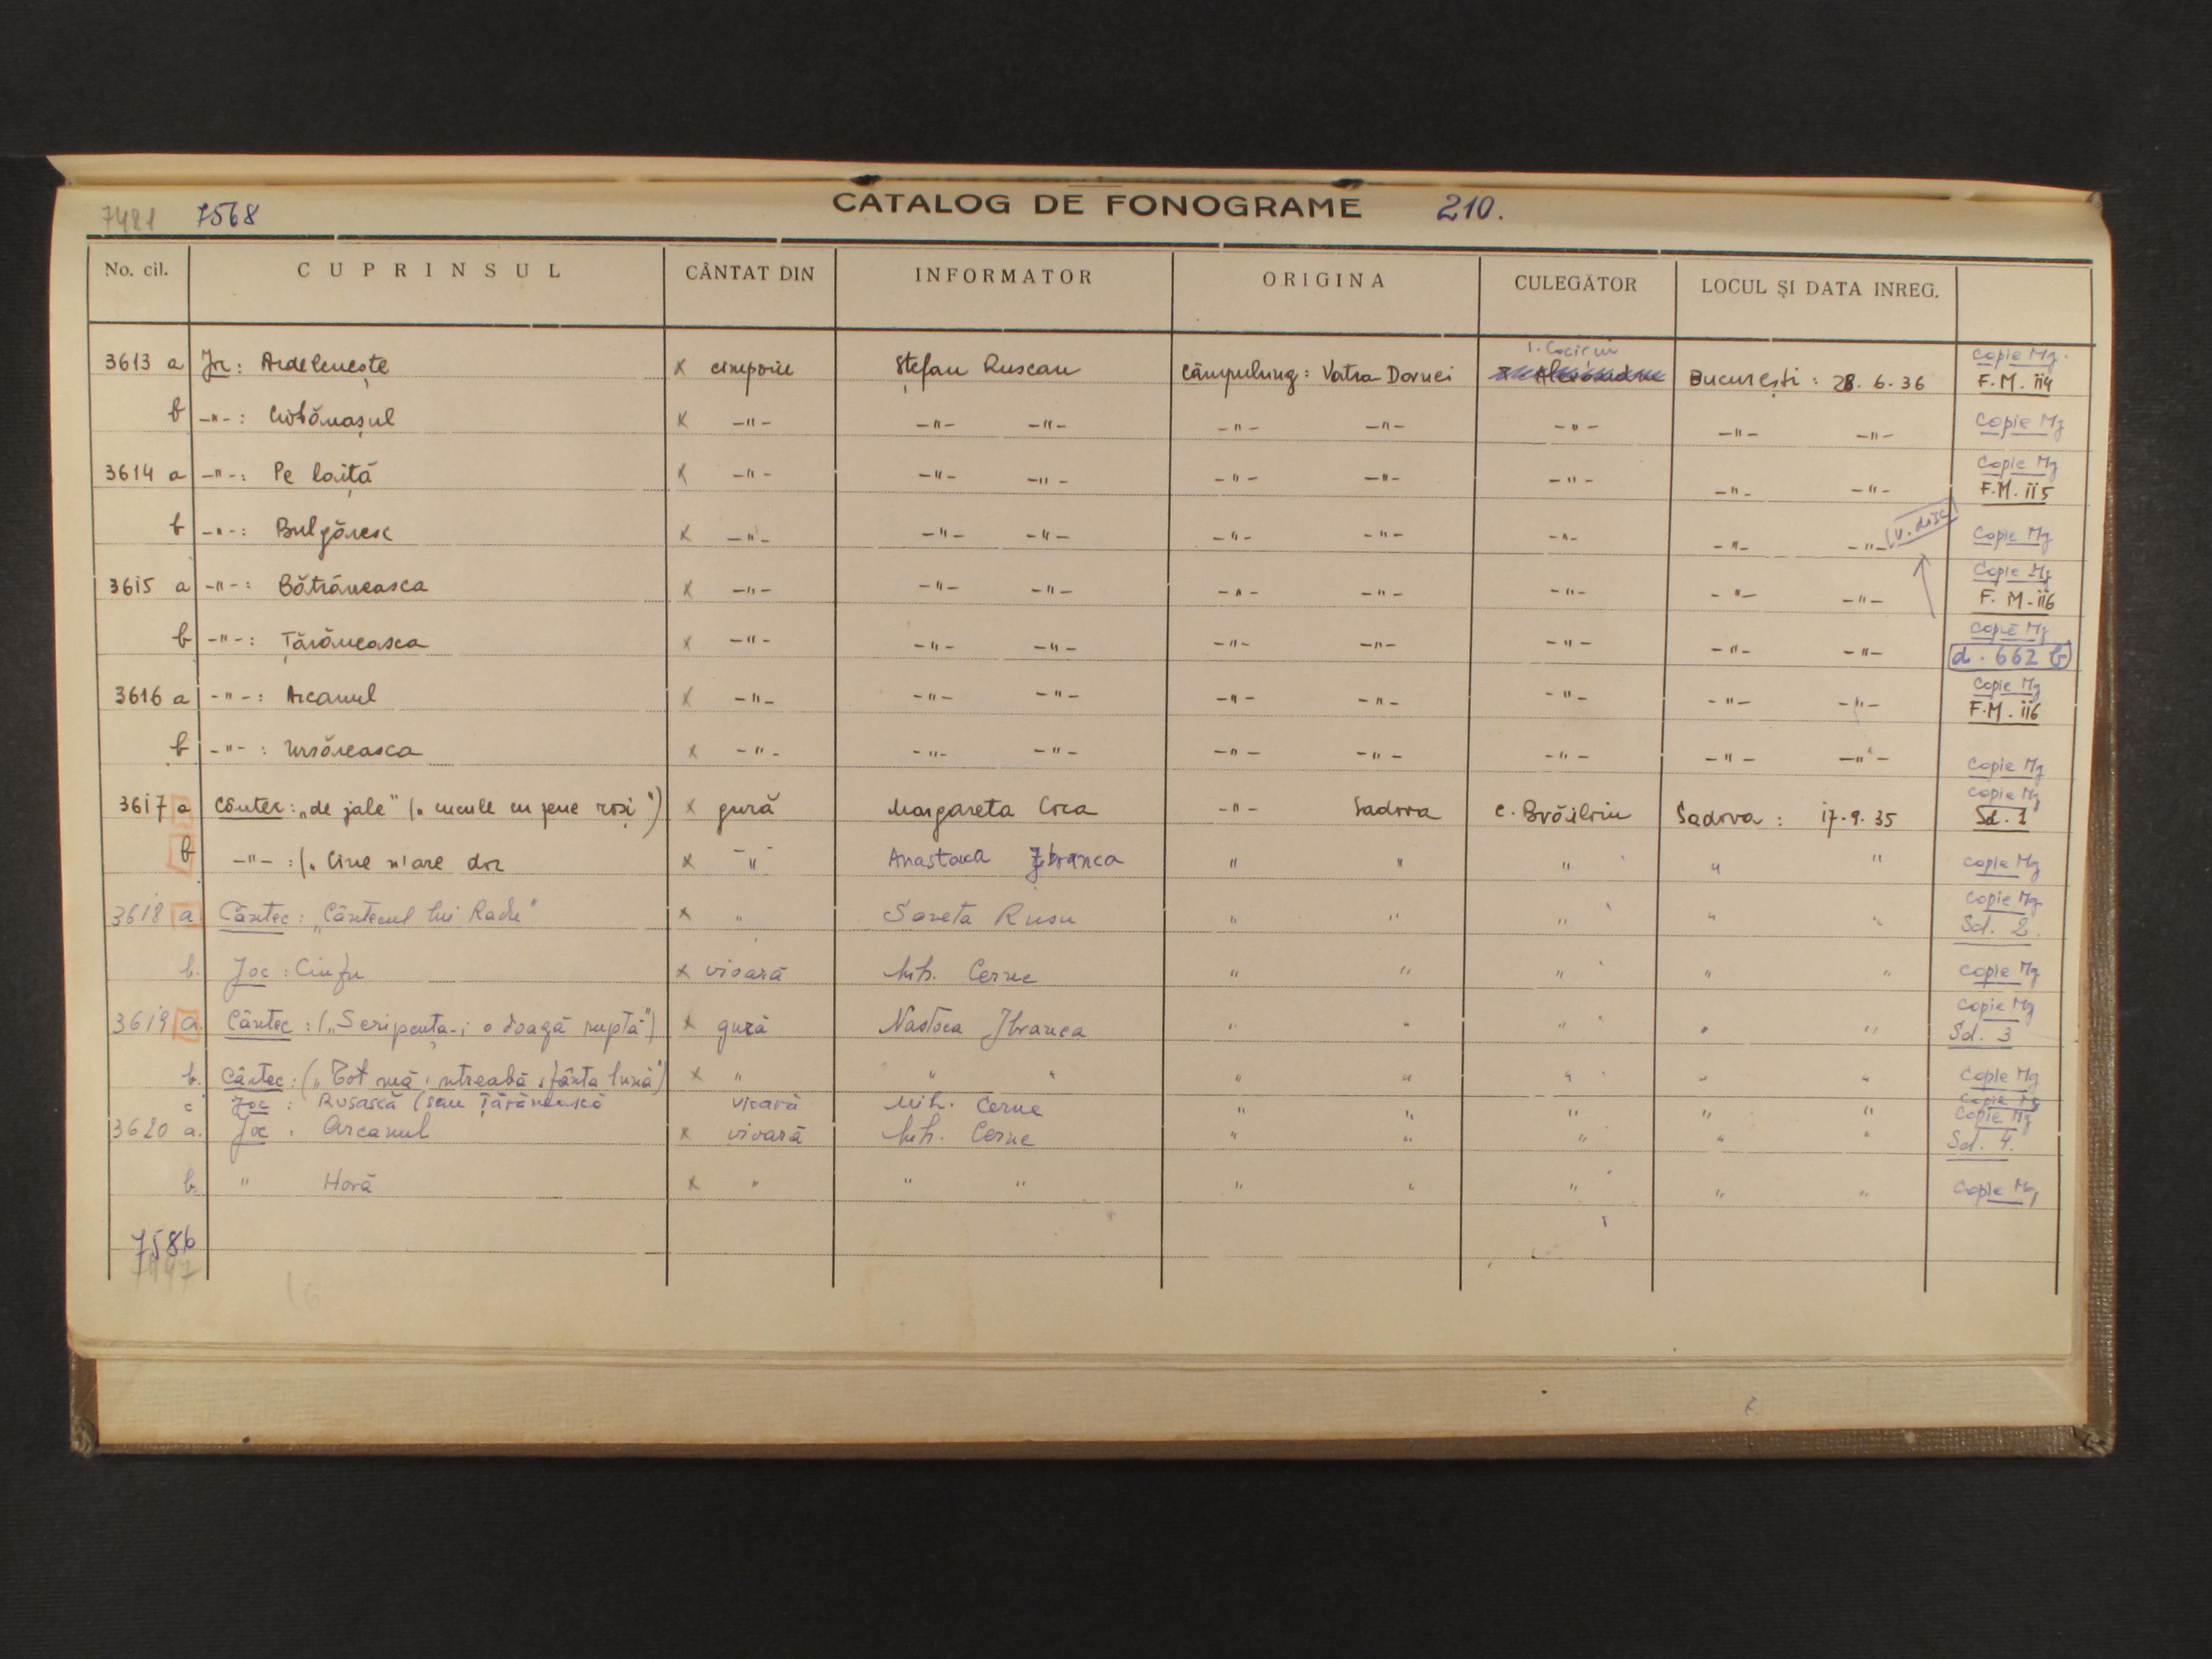 7481 7568 CATALOG DE FONOGRAME 210.
No. cil. CUPRINSUL CÂNTAT DIN INFORMATOR ORIGINA CULEGĂTOR LOCUL ȘI DATA INREG.
I. Cocișiu
3613 a Joc: Ardelenește x cimpoiu Ștefan Ruscan Câmpulung: Vatra Dornei București: 28.6.36 Copie Mg. F.M. 114
b -"-: Ciobănașul x -"- -"- -"- -"- -"- -"- -"- -"- Copie Mg
3614 a -"-: Pe laiță x -"- -"- -"- -"- -"- -"- -"- -"- Copie Mg F.M. 115
b -"-: Bulgăresc x -"- -"- -"- -"- -"- -"- -"- -"- (v. disc Copie Mg
3615 a -"-: Bătrâneasca x -"- -"- -"- -"- -"- -"- -"- -"- Copie Mg F.M-116
b -"-: Țărăneasca x -"- -"- -"- -"- -"- -"- -"- -"- Copie Mg d. 662 b
3616 a -"-: Arcanul x -"- -"- -"- -"- -"- -"- -"- -"- Copie Mg F.M. 116
b -"-: Ursăreasca x -"- -"- -"- -"- -"- -"- -"- -"- Copie Mg
3617 a Cântec: „de jale" („cucule cu pene roși") x gură Margareta Coca -"- Sadova C. Brăiloiu Sadova: 17.9.35 Copie Mg Sd. 1
b -"-: („Cine n'are dor x -"- " " " " " Copie Mg
3618 a Cântec: „Cântecul lui Radu" x " Saveta Rusu " " " " " Copie Mg Sd. 2
b. Joc: Ciufu x vioară Mih. Cerne " " " " " Copie Mg
3619 a. Cântec: („Scripcuța-i o doagă ruptă") x gură Nastsea Jbranca " " " " " Copie Mg Sd. 3
b. Cântec: („Tot mă 'ntreabă sfânta lună") x " " " " " " " " Copie Mg
c Joc: Rusască (sau Țărănească vioară Mih. Cerne " " " " " Copie Mg
3620 a. Joc: Arcanul x vioară Mih. Cerne " " " " " Copie Mg Sd. 4.
b. " Horă x " " " " " " " " Copie Mg
7586